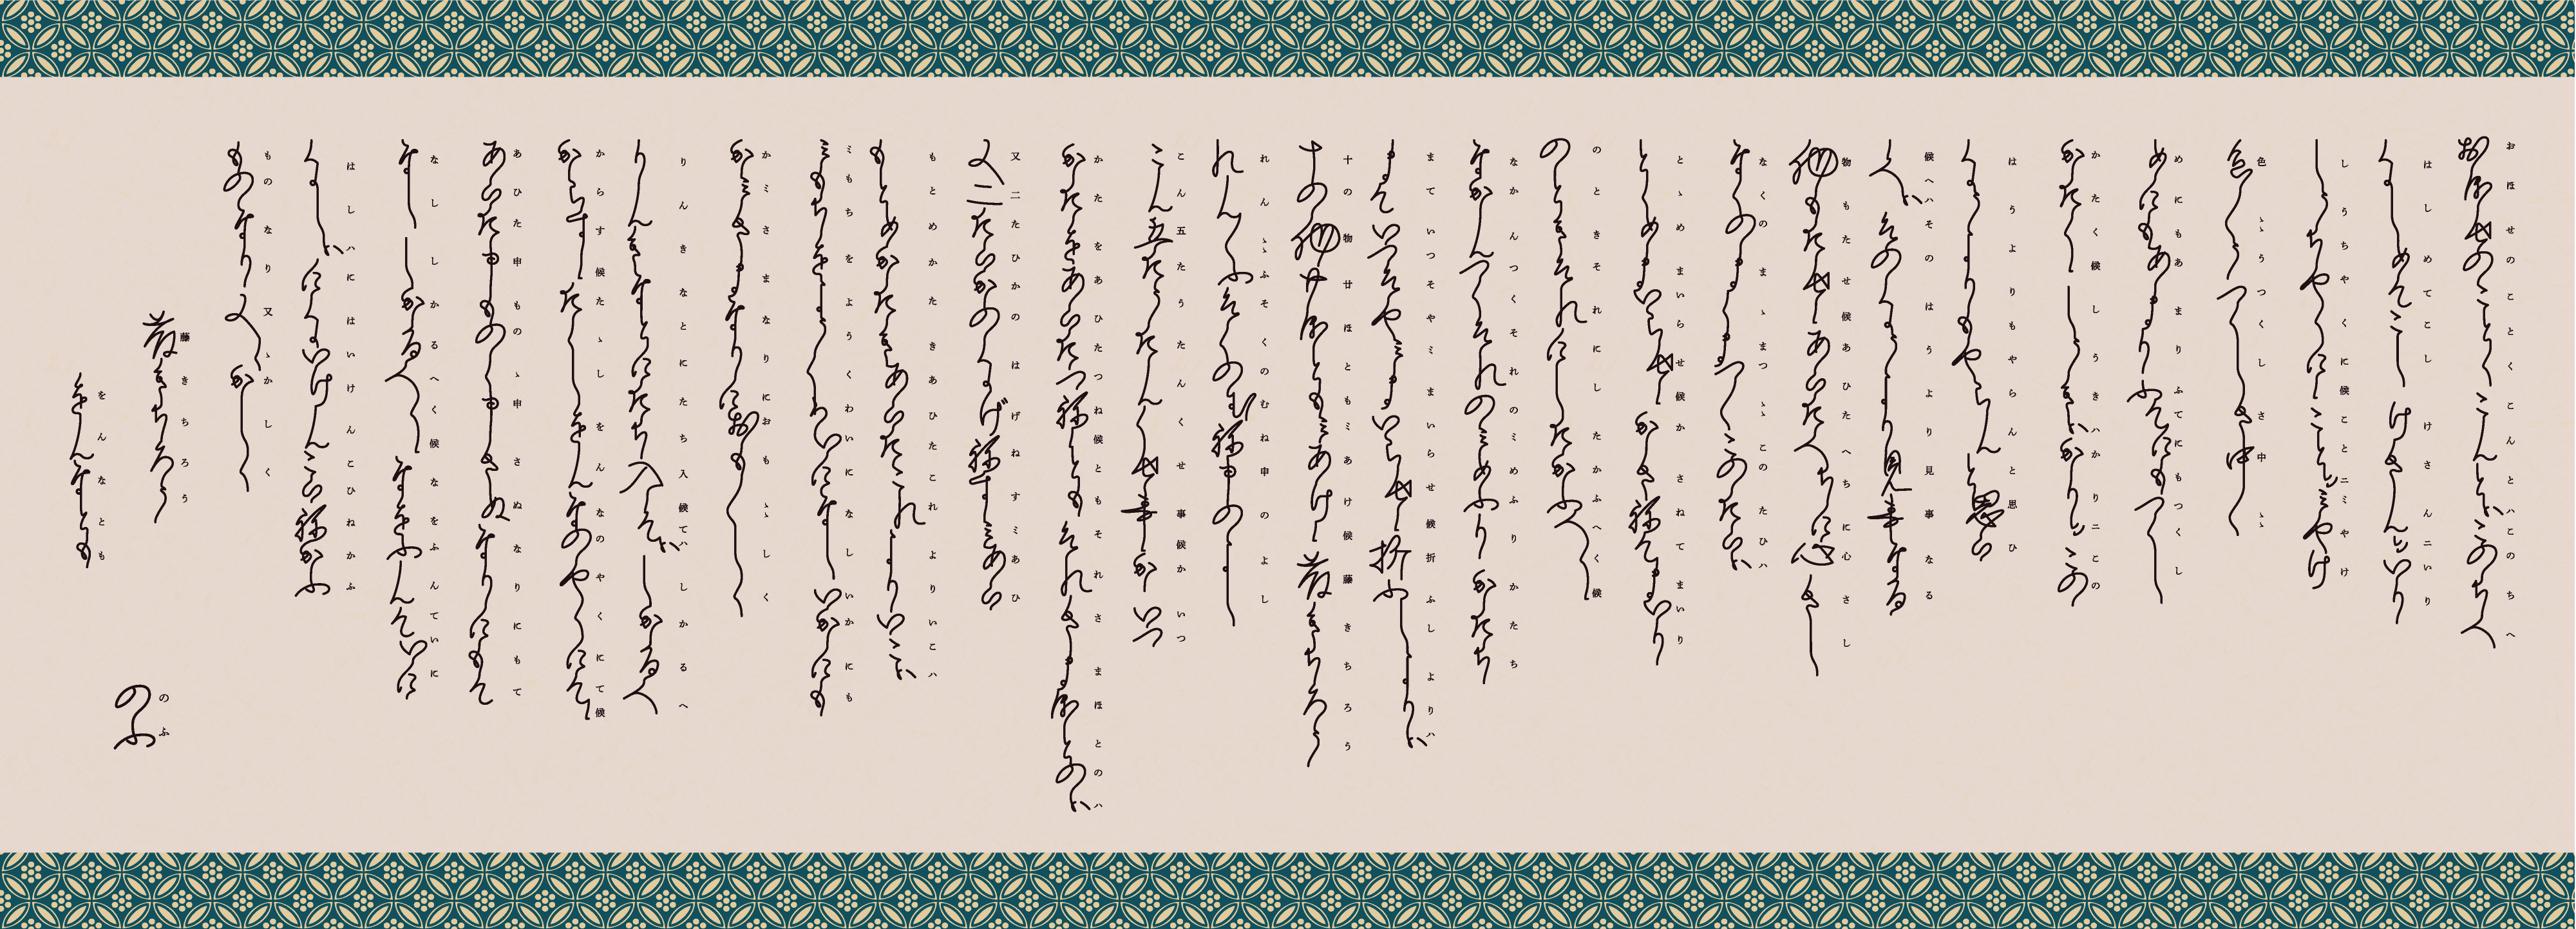 おほせのことくこんとハこのちへ
はしめてこしけさんニいり
しうちやくに候ことニミやけ
色〻うつくしさ中〻
めにもあまりふてにもつくし
かたく候しうきハかりニこの
はうよりもやらんと思ひ
候へハそのはうより見事なる
物もたせ候あひたへちに心さし
なくのまゝまつ〻このたひハ
とゝめまいらせ候かさねてまいり
のときそれにしたかふへく候
なかんつくそれのミめふりかたち
まていつそやミまいらせ候折ふしよりハ
十の物廿ほともミあけ候藤きちろう
れん〻ふそくのむね申のよし
こん五たうたんくせ事候かいつ
かたをあひたつね候ともそれさまほとのハ
又二たひかのはげねすミあひ
もとめかたきあひたこれよりいこハ
ミもちをようくわいになしいかにも
かミさまなりにおも〻しく
りんきなとにたち入候てハしかるへ
からす候たゝしをんなのやくにて候
あひた申ものゝ申さぬなりにもて
なししかるへく候なをふんていに
はしハにはいけんこひねかふ
ものなり又ゝかしく
藤きちろう
をんなとも
のふ